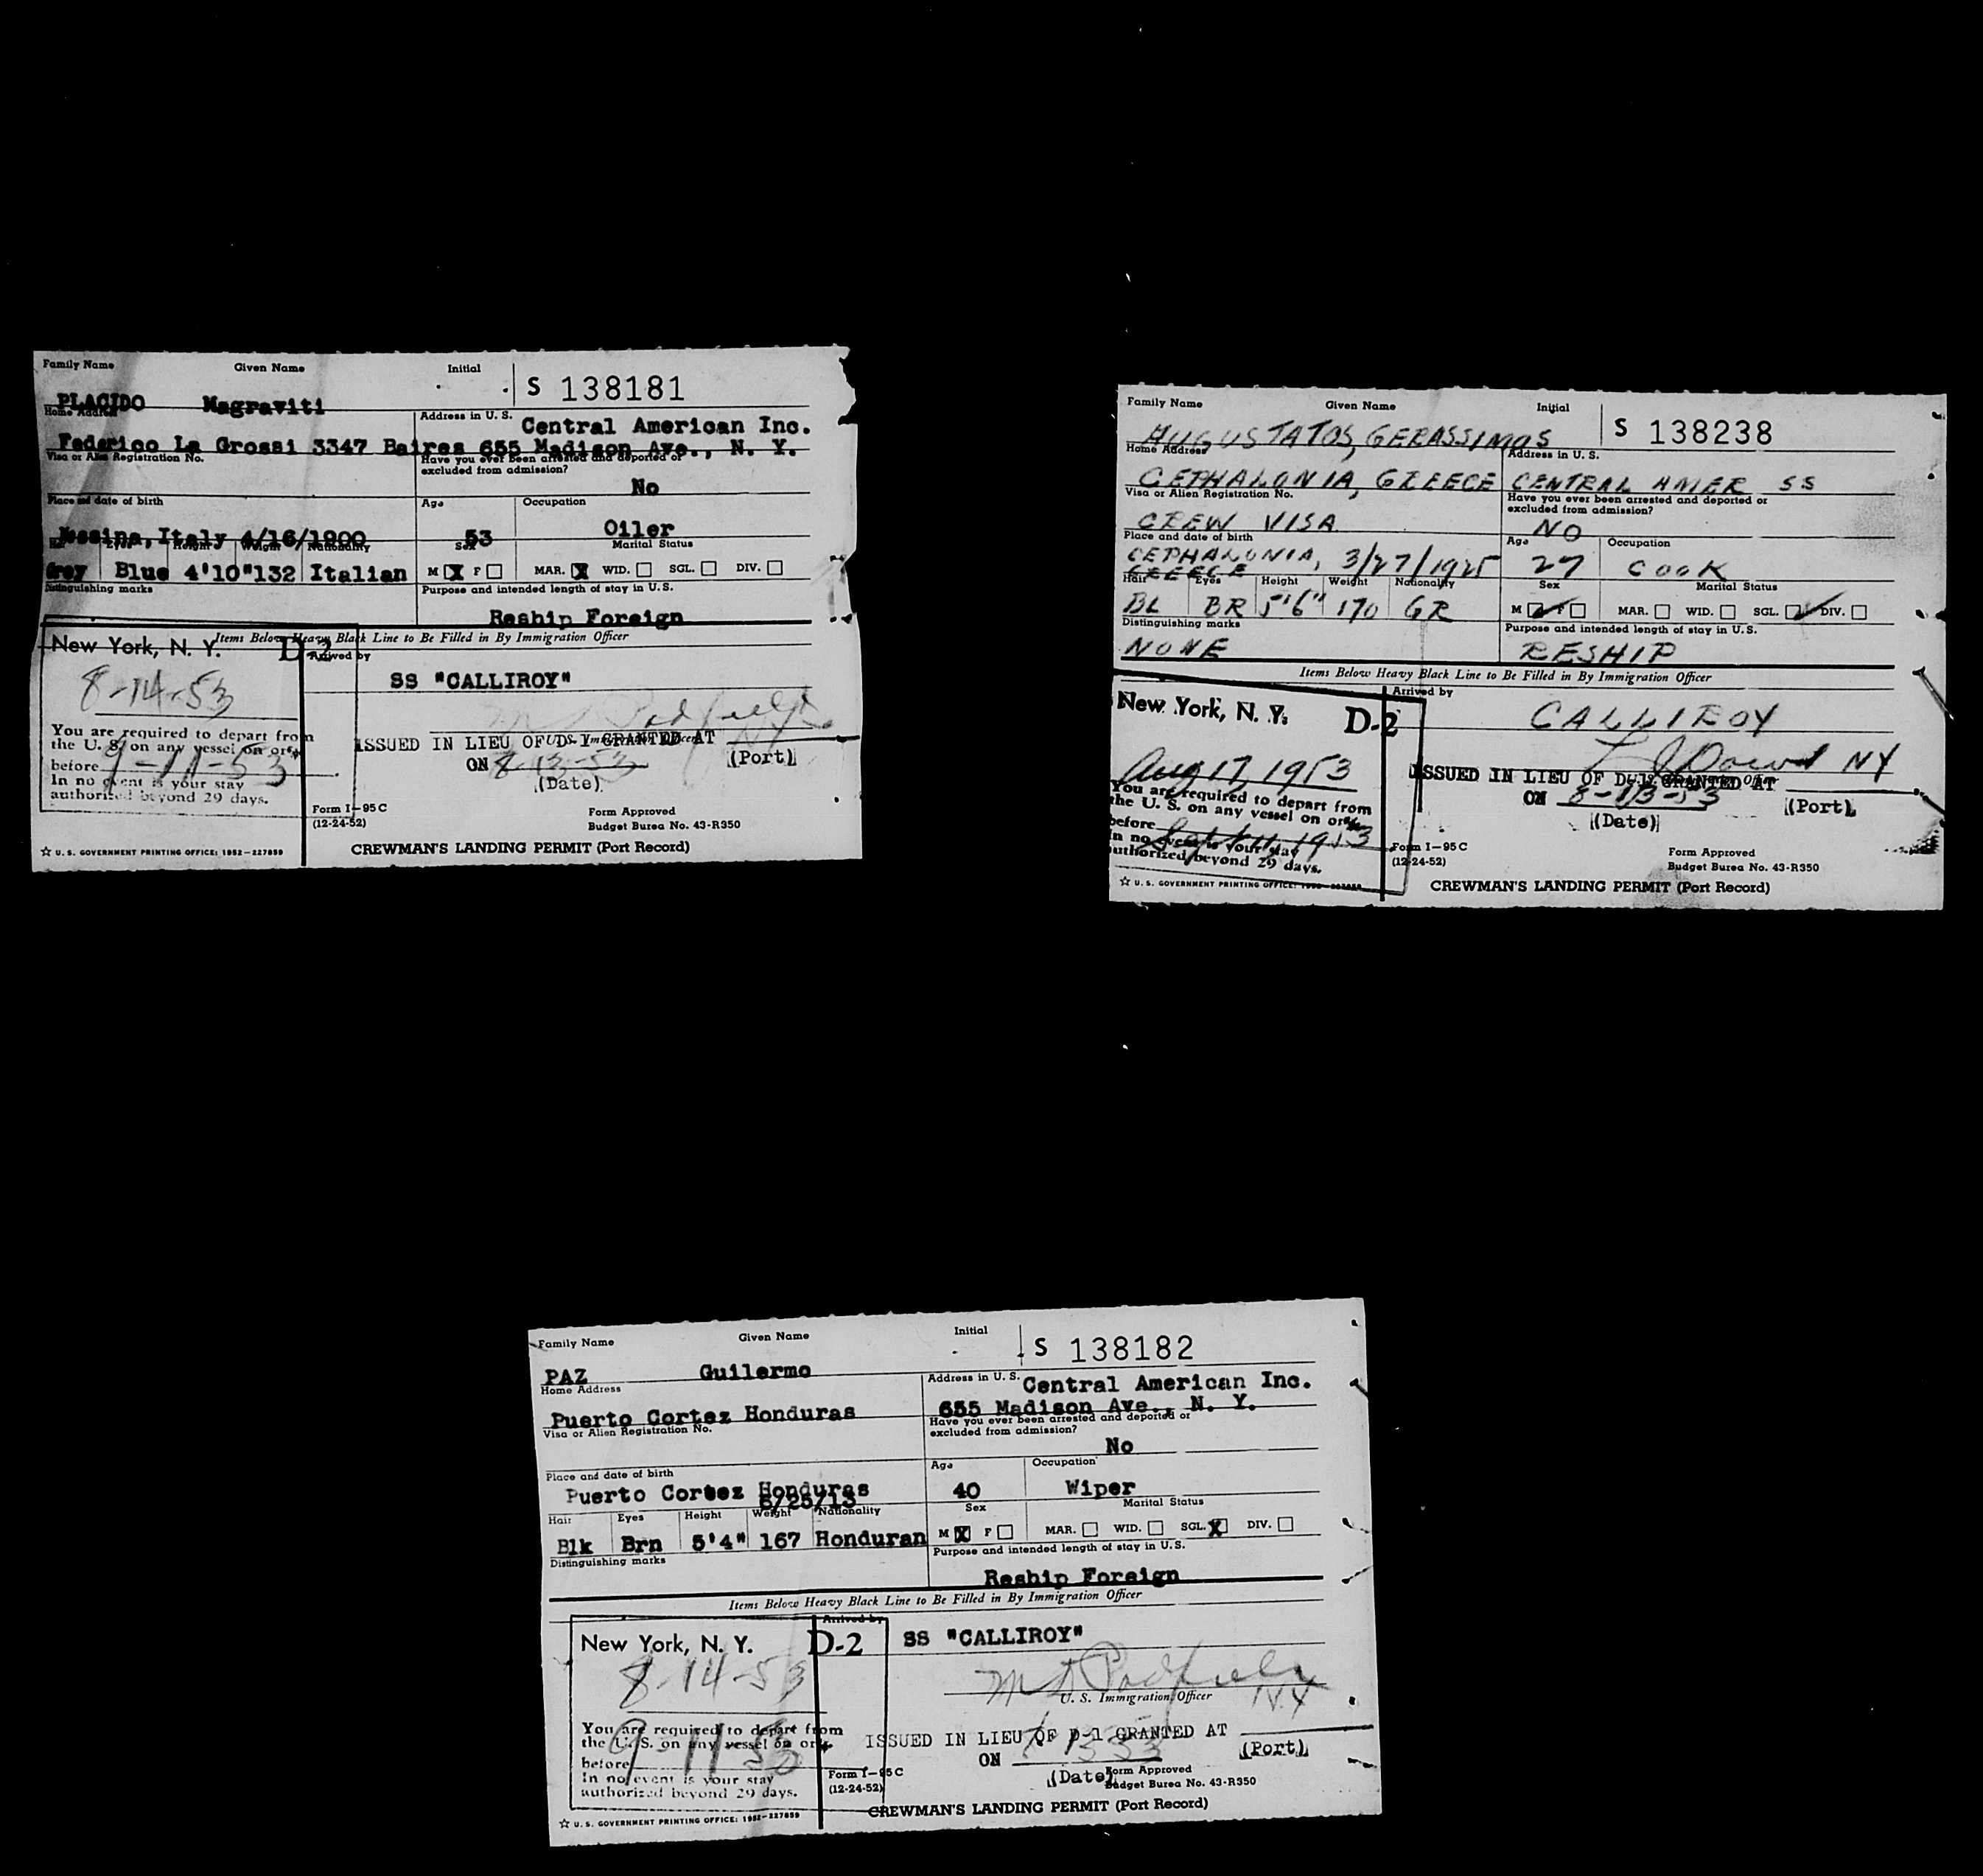 Family Name Given Name Initial S 138181
PLACIDO Magraviti
Home Address Address in U. S. Central American Inc.
Federico La Grossi 3347 Baires 655 Madison Ave., N. Y.
Visa or Alien Registration No. Have you ever been arrested and deported or
excluded from admission?
No
Place and date of birth Age Occupation
Messina, Italy 4/16/1900 53 Oiler
Hair Eyes Height Weight Nationality Sex Marital Status
Grey Blue 4'10" 132 Italian M X F MAR. X WID. SGL. DIV.
Distinguishing marks Purpose and intended length of stay in U.S.
Reship Foreign
Items Below Heavy Black Line to Be Filled in By Immigration Officer
New York, N. Y. D-2 Arrived by
SS "CALLIROY"
8-14-53
You are required to depart from
the U. S. on any vessel on or
before 9-11-53
In no event is your stay
authorized beyond 29 days.
U. S. Immigration Officer
ISSUED IN LIEU OF D-1 GRANTED AT NY
ON 8-13-53 (Port)
(Date)
Form I-95 C
(12-24-52)
Form Approved
Budget Burea No. 43-R350
☆ U. S. GOVERNMENT PRINTING OFFICE: 1952-227859 CREWMAN'S LANDING PERMIT (Port Record)
Family Name Given Name Initial S 138238
AUGUSTATOS, GERASSIMOS
Home Address Address in U. S.
CEPHALONIA, GREECE CENTRAL AMER SS
Visa or Alien Registration No. Have you ever been arrested and deported or
excluded from admission?
CREW VISA NO
Place and date of birth Age Occupation
CEPHALONIA, 3/27/1925 27 COOK
GREECE
Hair Eyes Height Weight Nationality Sex Marital Status
BL BR 5'6" 170 GR M F MAR. WID. SGL. DIV.
Distinguishing marks Purpose and intended length of stay in U.S.
NONE RESHIP
Items Below Heavy Black Line to Be Filled in By Immigration Officer
New York, N. Y. D-2 Arrived by
CALLIROY
Aug 17, 1953
You are required to depart from
the U. S. on any vessel on or
before Sept 11, 1953
In no event is your stay
authorized beyond 29 days.
U. S. Immigration Officer
ISSUED IN LIEU OF D-1 GRANTED AT NY
ON 8-13-53 (Port)
(Date)
Form I-95 C
(12-24-52)
Form Approved
Budget Burea No. 43-R350
☆ U. S. GOVERNMENT PRINTING OFFICE: CREWMAN'S LANDING PERMIT (Port Record)
Family Name Given Name Initial S 138182
PAZ Guillermo
Home Address Address in U. S. Central American Inc.
Puerto Cortez Honduras 655 Madison Ave., N. Y.
Visa or Alien Registration No. Have you ever been arrested and deported or
excluded from admission?
No
Place and date of birth Age Occupation
Puerto Cortez Honduras 40 Wiper
6/25/13
Hair Eyes Height Weight Nationality Sex Marital Status
Blk Brn 5'4" 167 Honduran M X F MAR. WID. SGL. X DIV.
Distinguishing marks Purpose and intended length of stay in U.S.
Reship Foreign
Items Below Heavy Black Line to Be Filled in By Immigration Officer
New York, N. Y. D-2 Arrived by
SS "CALLIROY"
8-14-53
You are required to depart from
the U. S. on any vessel on or
before 9-11-53
In no event is your stay
authorized beyond 29 days.
U. S. Immigration Officer
N.Y
ISSUED IN LIEU OF D-1 GRANTED AT
ON (Port)
(Date)
Form I-95 C
(12-24-52)
Form Approved
Budget Burea No. 43-R350
☆ U. S. GOVERNMENT PRINTING OFFICE: 1952-227859 CREWMAN'S LANDING PERMIT (Port Record)